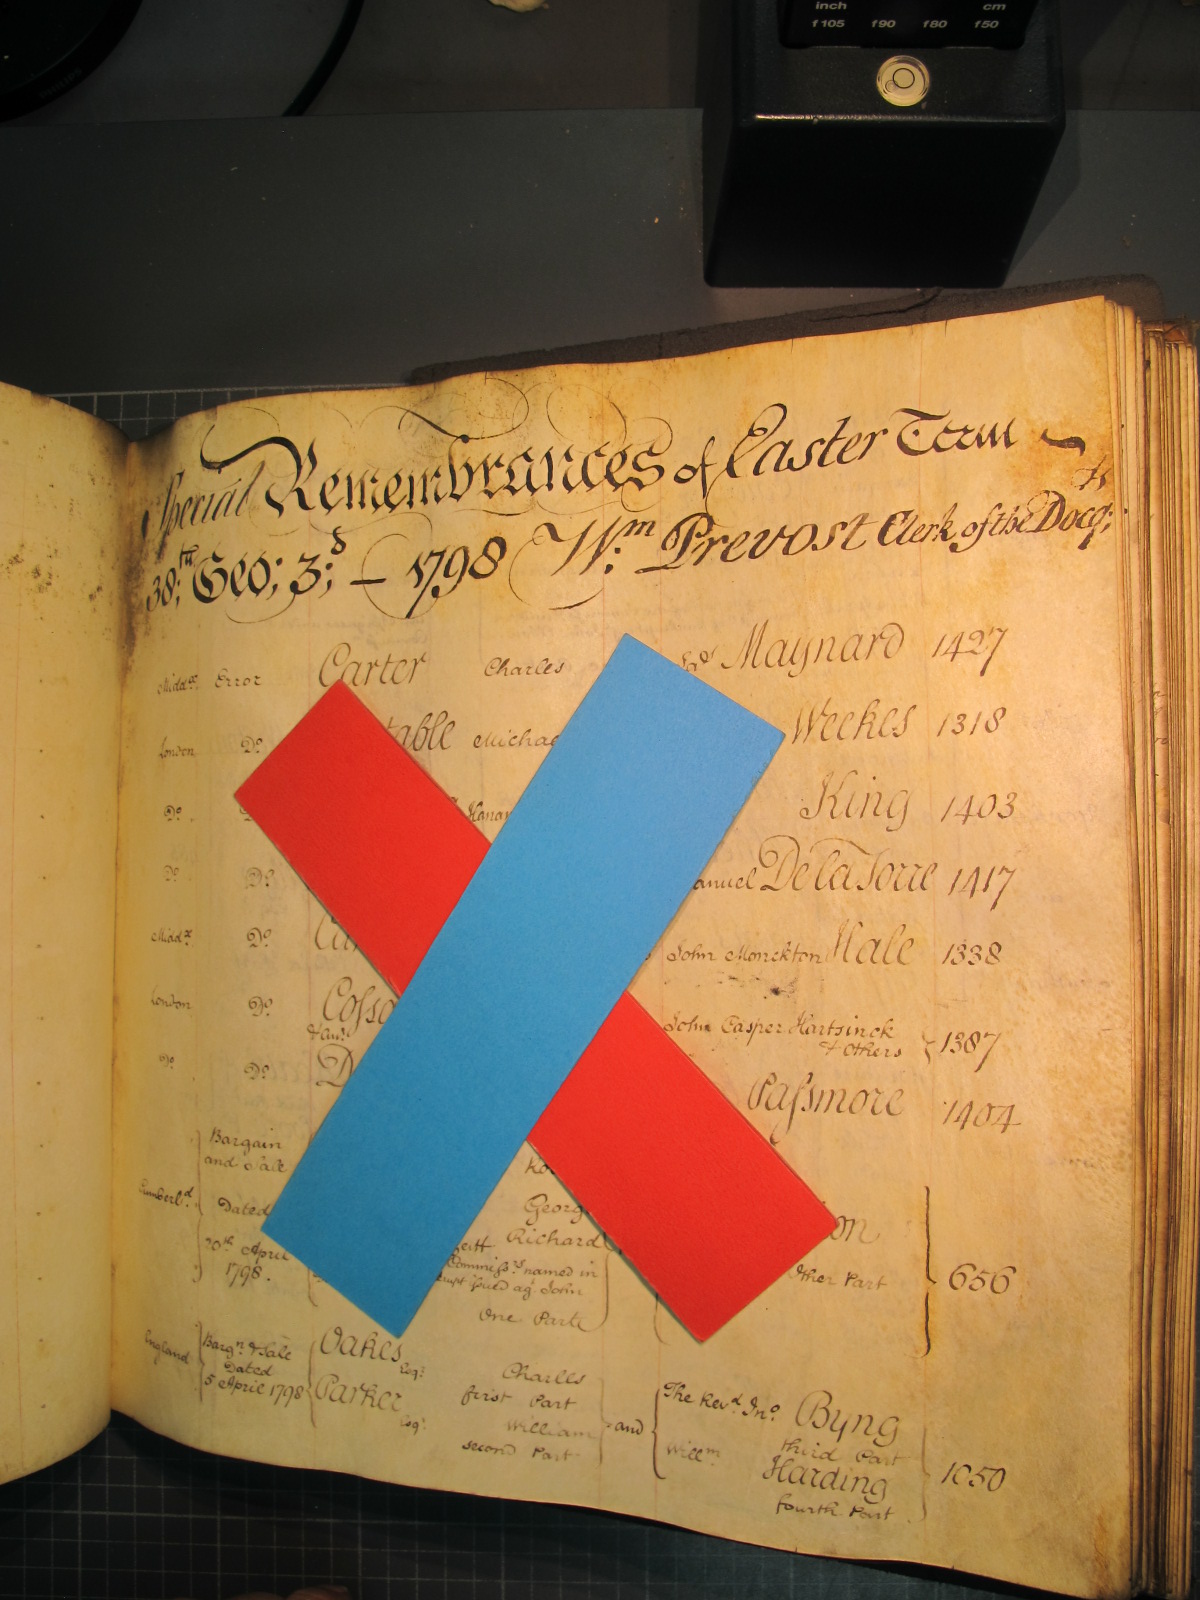 inch cm
f105 f90 f80 f50
PHILIPS
Special Remembrances of Easter Term
38;th Geo; 3;d — 1798 Wm Prevost Clerk of the Docqts
Middx Error Carter Charles Maynard 1427
London Do table Michae Weekes 1318
Do King 1403
Do Do anuel De la Torre 1417
Middx Do John Monckton Hale 1338
London Do Cosso John Casper Hartsinck
& Others 1387
Do Do D Passmore 1404
Bargain
and Sale
Cumberld. Dated Georg
20th April Richard on
1798. Commissrs named in other Part 656
John
One Parte
England Bargn & Sale Oakes Esqr. Charles
Dated first Part The Revd. Jno. Byng
5 April 1798 Parker Esqr. William and third Part
second Part Willm. Harding 1050
fourth Part